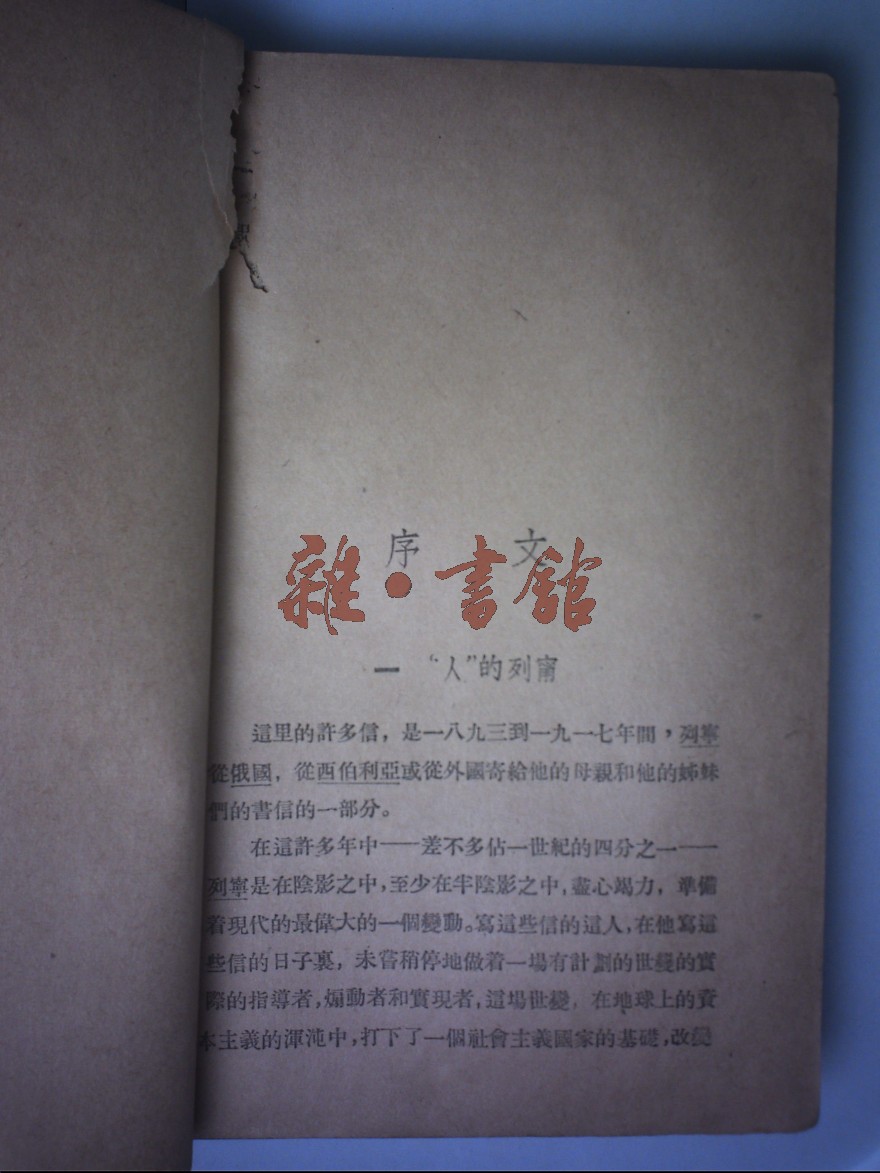 序 文
雜·書館
一 “人”的列甯
這里的許多信，是一八九三到一九一七年間，列寧
從俄國，從西伯利亞或從外國寄給他的母親和他的姊妹
們的書信的一部分。
在這許多年中——差不多佔一世紀的四分之一——
列寧是在陰影之中，至少在半陰影之中，盡心竭力，準備
着現代的最偉大的一個變動。寫這些信的這人，在他寫這
些信的日子裏，未嘗稍停地做着一場有計劃的世變的實
際的指導者，煽動者和實現者，這場世變，在地球上的資
本主義的渾沌中，打下了一個社會主義國家的基礎，改變